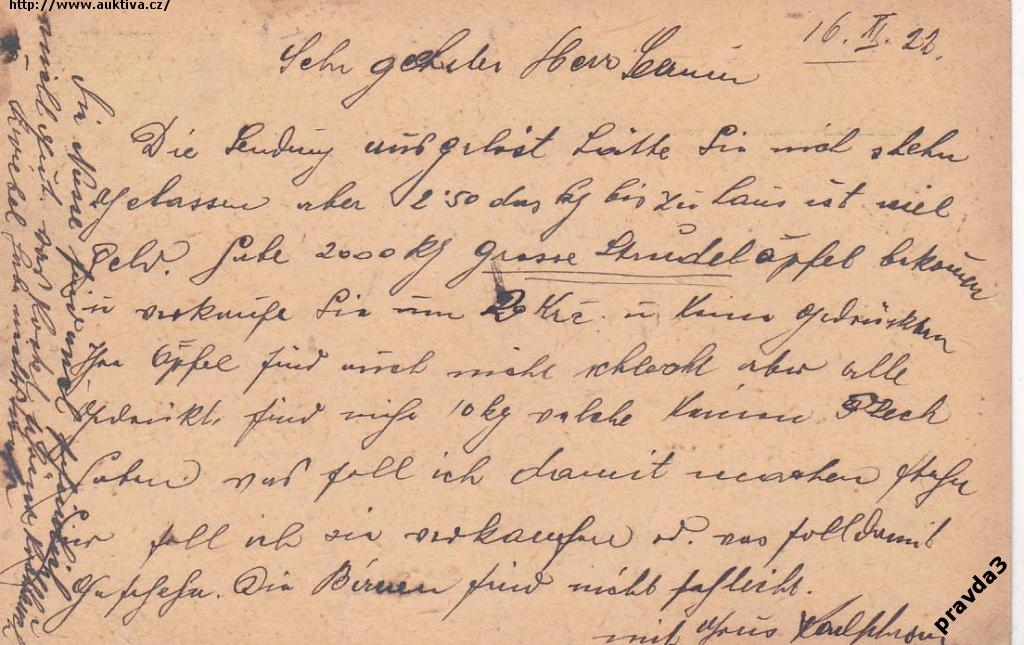 http://www.auktiva.cz/
16. XI. 22.
Sehr geehrter Herr
Die Sendung ausgelöst hätte Sie noch stehn
gelassen aber 2·50 das kg bis zu Haus ist viel
Geld. Habe 2000 kg grosse Strudeläpfel bekommen
u verkaufe Sie um 2 Kr u keine gedrückten
Ihre Äpfel sind auch nicht schlecht aber alle
gedrückt. sind nicht 10 kg welche keinen Fleck
haben was soll ich damit machen stehn
soll ich sie verkaufen od. was soll damit
geschehn. Die Birnen sind nicht schlecht.
mit Gruss
Die Nüsse sind und
nicht gut was
Zwiebel habe
pravda3